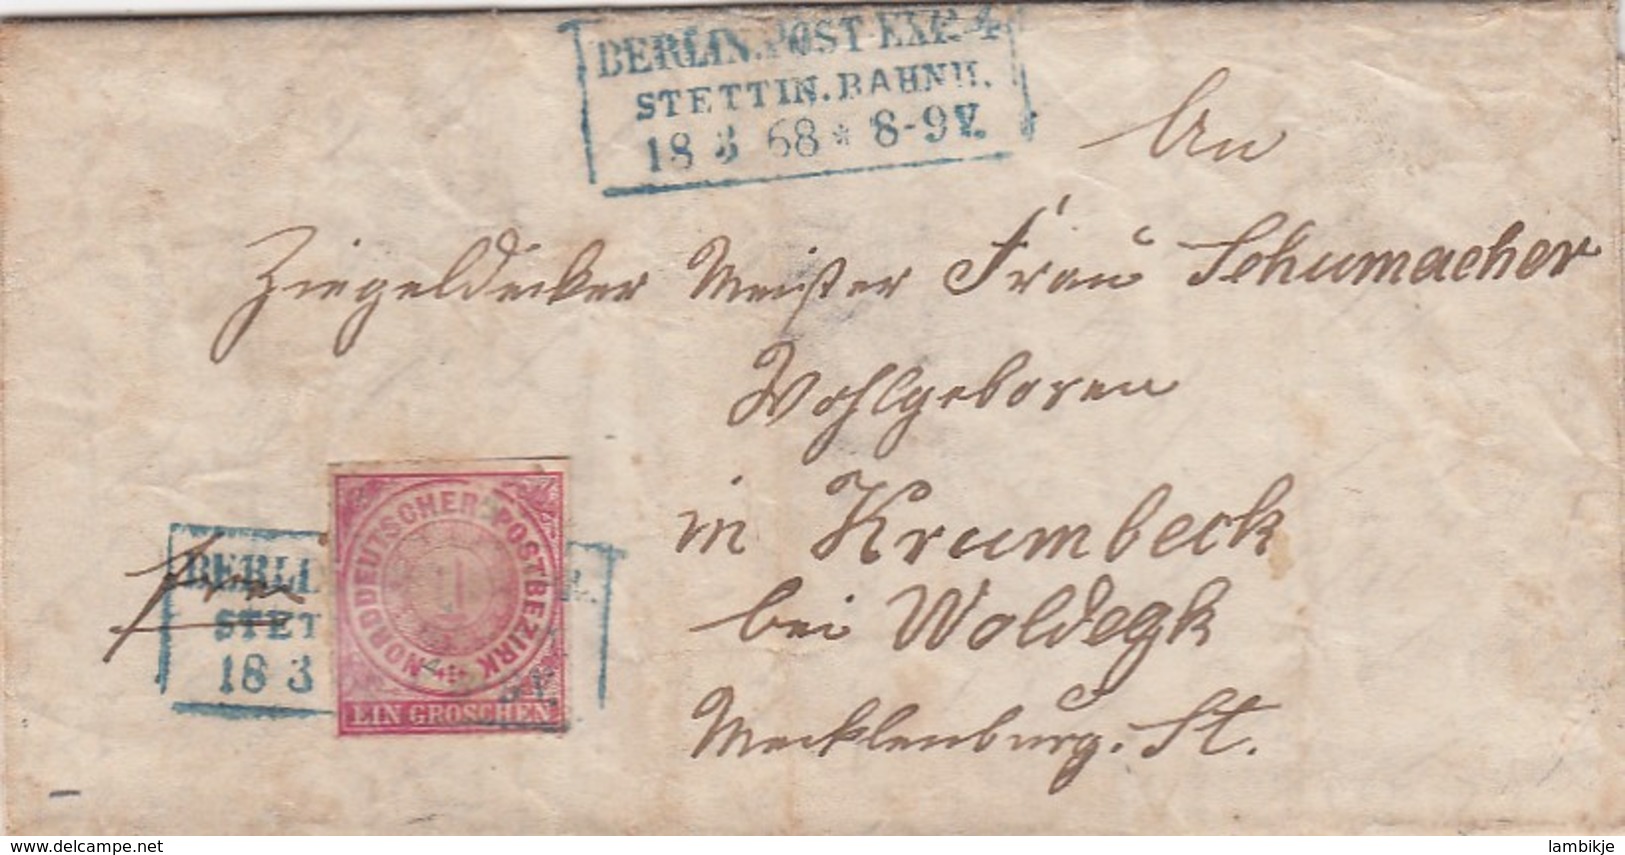 BERLIN.POST EXP. 4
STETTIN.BAHNH.
18 3 68 * 8-9 V.
An
Ziegeldecker Meister Frau Schumacher
Wohlgeboren
in Krumbeck
bei Woldegk
Mecklenburg. St.
frei
BERLI
STET
18 3
NORDDEUTSCHER POSTBEZIRK
1
EIN GROSCHEN
www.delcampe.net
lambikje